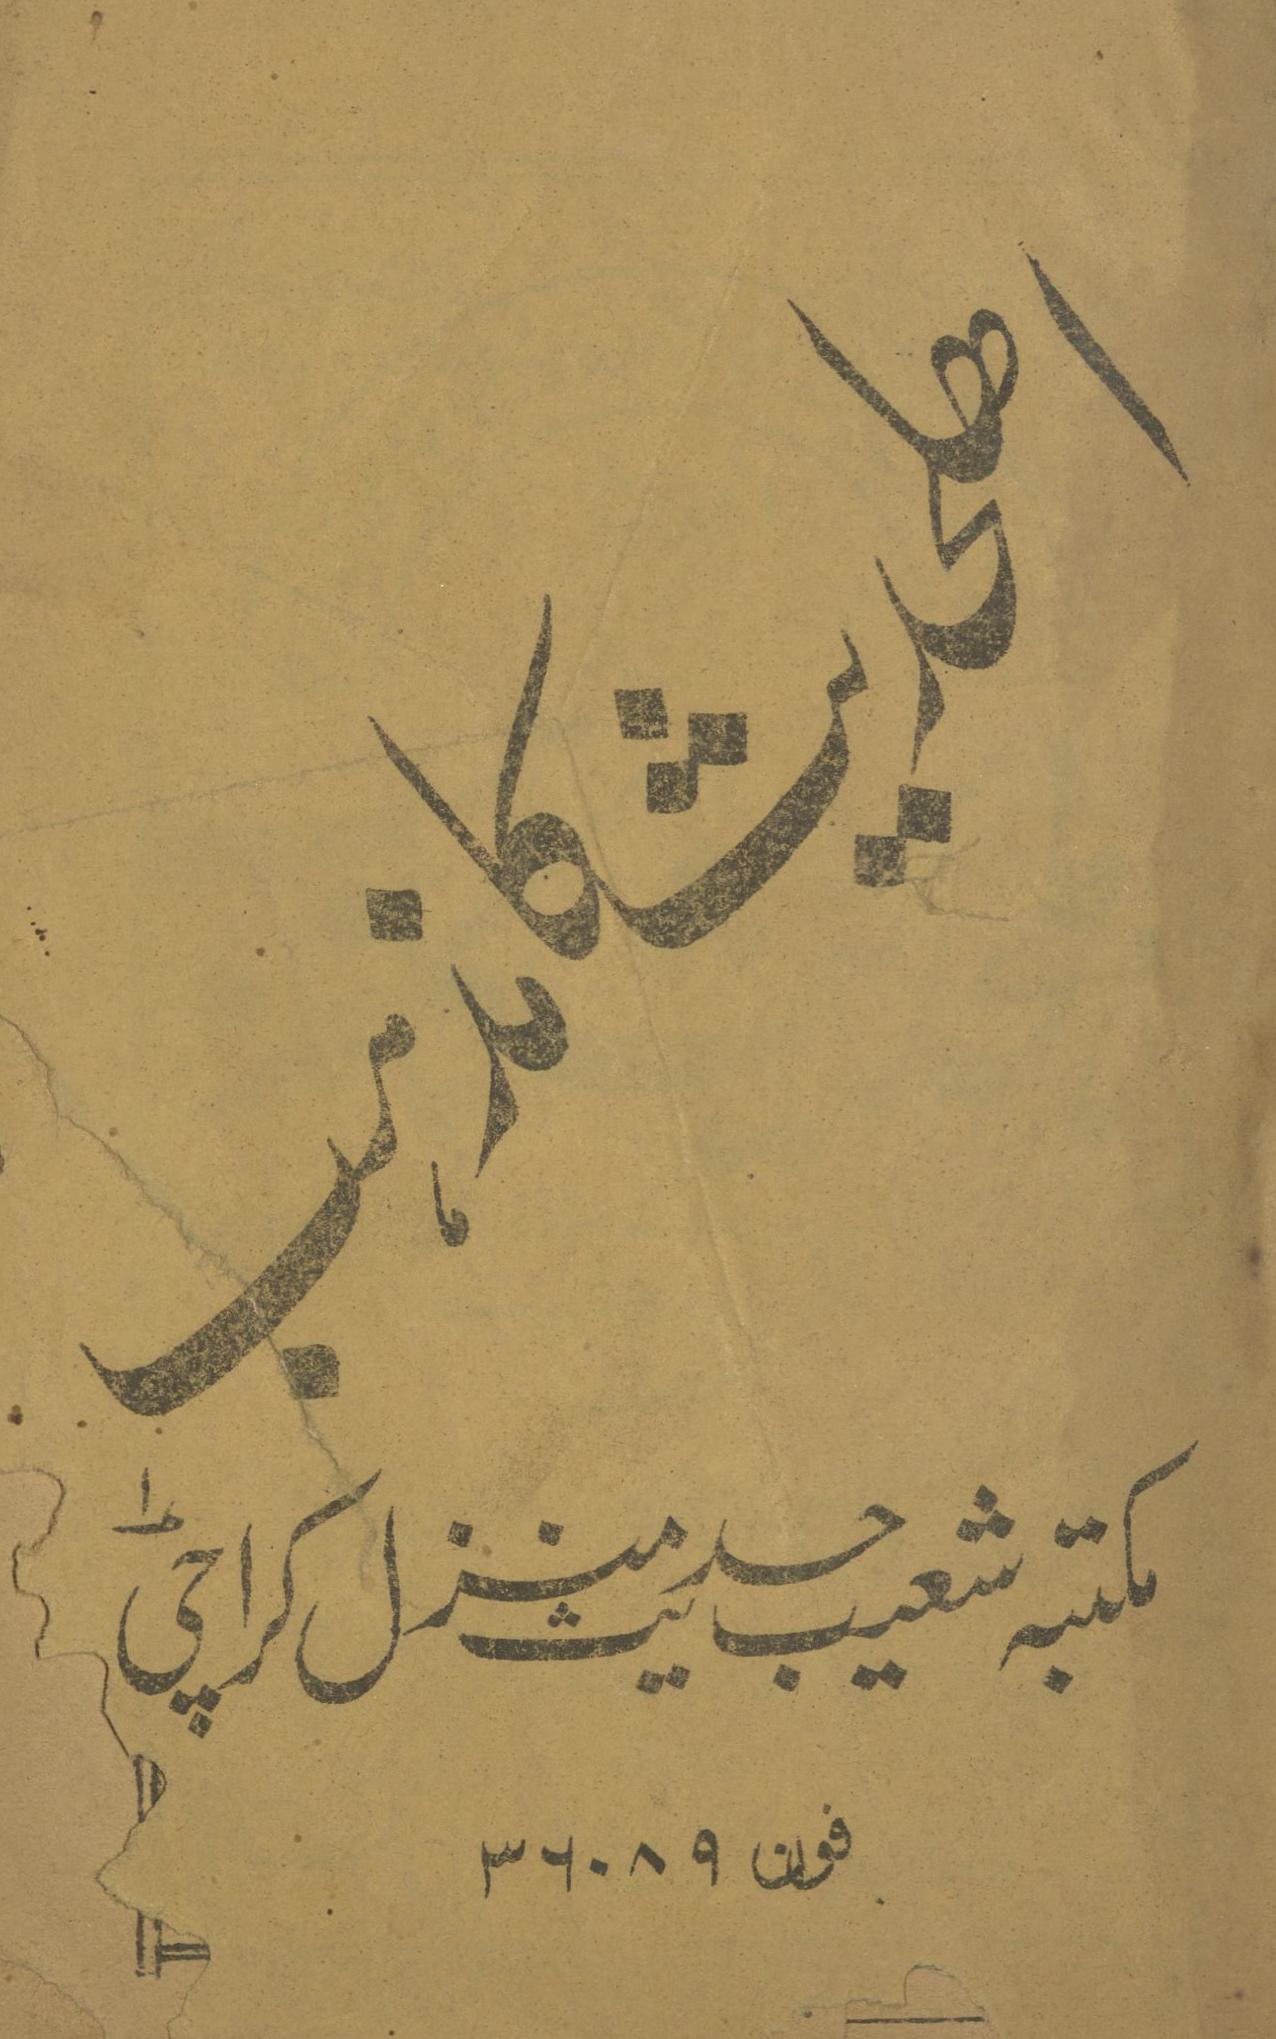 اہلحدیث کا مذہب
مکتبہ شعیب حدیث منزل کراچی ۱
فون ۳۶۰۸۹